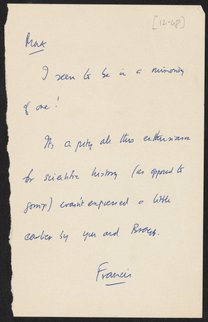 [12-68]
Max
I seem to be in a minority
of one!
It's a pity all this enthusiasm
for scientific history (as opposed to
gossip) wasn't expressed a little
earlier by you and Bragg.
Francis